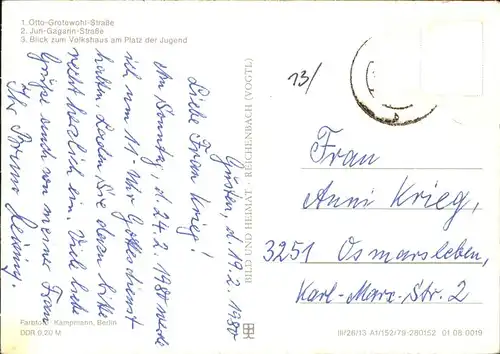 1. Otto-Grotewohl-Straße
2. Juri-Gagarin-Straße
3. Blick zum Volkshaus am Platz der Jugend
Güsten, d. 19.2.1980
Liebe Frau Krieg!
Am Sonntag, d. 24.2.1980 werde
ich um 11 Uhr Gottesdienst
halten. Laden Sie dazu bitte
recht herzlich ein. Viele liebe
Grüße auch von meiner Frau
Ihr Bruno
Farbfoto: Kampmann, Berlin
DDR 0,20 M
BILD UND HEIMAT · REICHENBACH (VOGTL)
13/
Frau
Anni Krieg,
3251 Osmarsleben,
Karl-Marx-Str. 2
III/26/13 A1/152/79-280152 01 08 0019